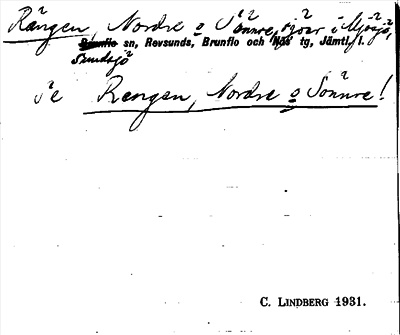 Rängen, Nordre o Sönnre, sjöar i Mjösjö,
Brunflo sn, Revsunds, Brunflo och Näs tg, Jämtl. l.
Sundsjö
Se Rengen, Nordre o Sönnre!
C. LINDBERG 1931.